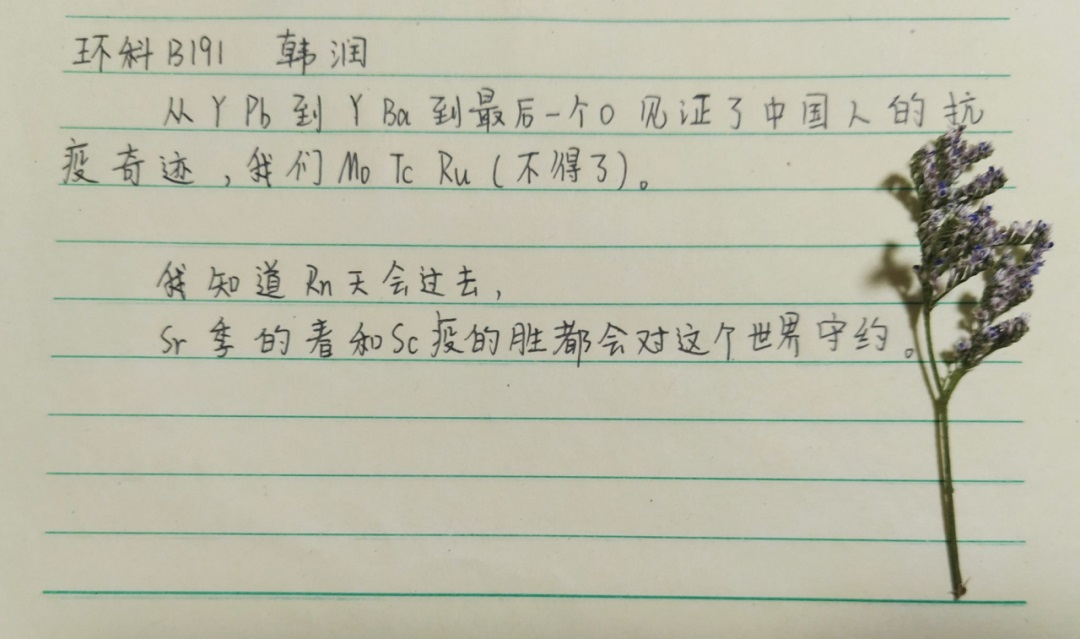 环科B191 韩润
从Y Pb到Y Ba到最后一个0见证了中国人的抗
疫奇迹，我们Mo Tc Ru(不得了)。
我知道Rn天会过去，
Sr季的春和Sc疫的胜都会对这个世界守约。